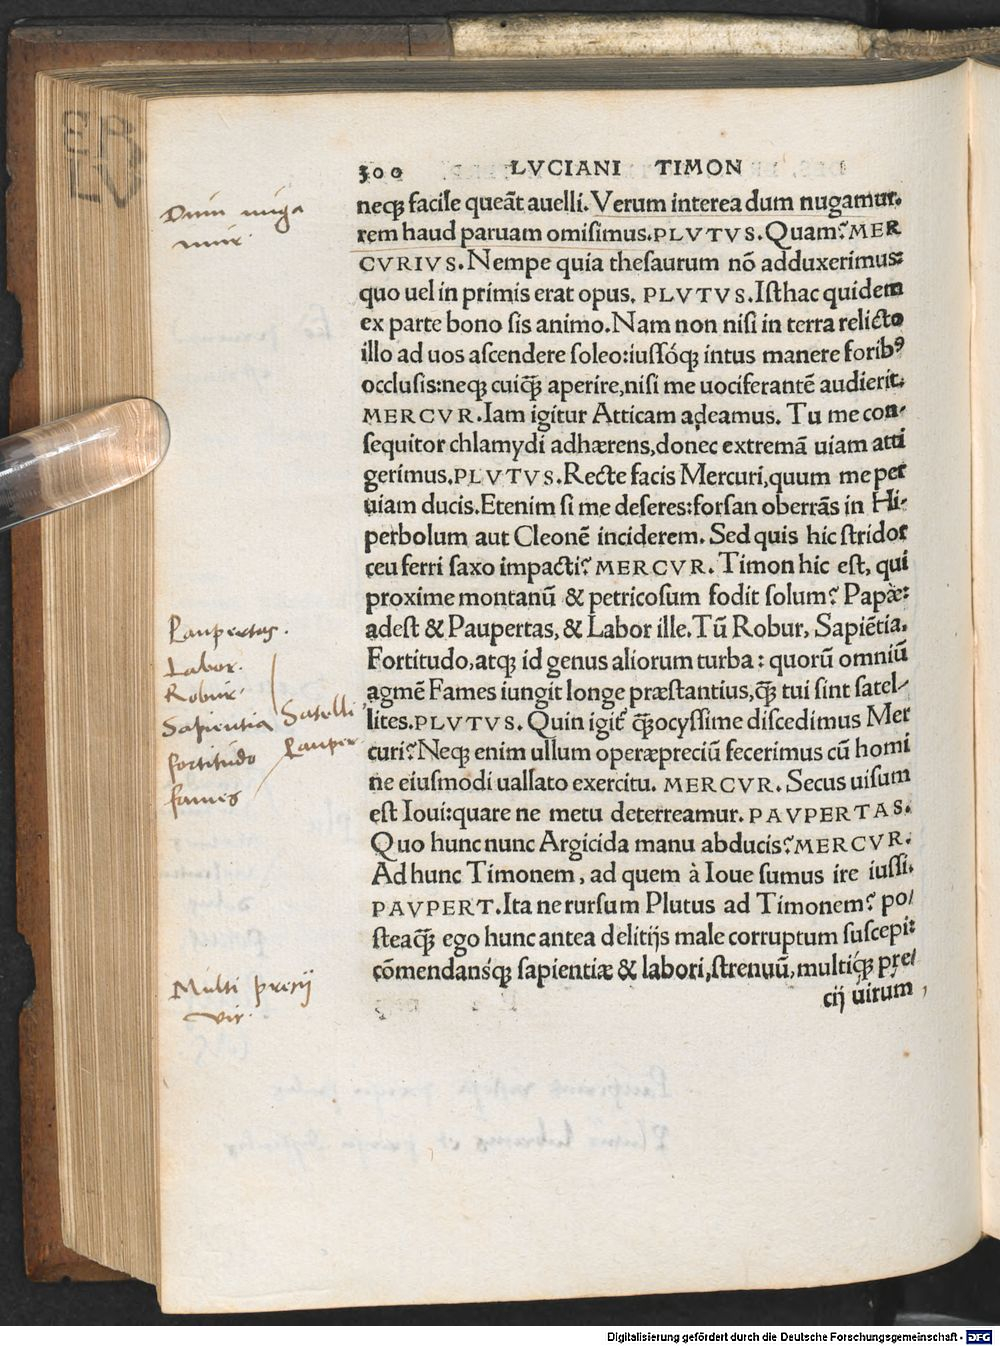 300 LVCIANI TIMON
neqꝫ facile queāt auelli. Verum interea dum nugamur,
rem haud paruam omisimus. PLVTVS. Quam? MER
CVRIVS. Nempe quia thesaurum nō adduxerimus:
quo uel in primis erat opus. PLVTVS. Isthac quidem
ex parte bono sis animo. Nam non nisi in terra relicto
illo ad uos ascendere soleo: iussóqꝫ intus manere foribꝰ
occlusis: neqꝫ cuiq̄ꝫ aperire, nisi me uociferantē audierit.
MERCVR. Iam igitur Atticam adeamus. Tu me con-
sequitor chlamydi adhærens, donec extremā uiam atti
gerimus. PLVTVS. Recte facis Mercuri, quum me per
uiam ducis. Etenim si me deseres: forsan oberrās in Hi-
perbolum aut Cleonē inciderem. Sed quis hic stridor
ceu ferri saxo impacti? MERCVR. Timon hic est, qui
proxime montanū & petricosum fodit solum? Papæ:
adest & Paupertas, & Labor ille. Tū Robur, Sapiētia,
Fortitudo, atqꝫ id genus aliorum turba: quorū omniū
agmē Fames iungit longe præstantius, q̄ꝫ tui sint satel-
lites. PLVTVS. Quin igit̄ q̄ꝫocyssime discedimus Mer
curi? Neqꝫ enim ullum operæpreciū fecerimus cū homi
ne eiusmodi uallato exercitu. MERCVR. Secus uisum
est Ioui: quare ne metu deterreamur. PAVPERTAS.
Quo hunc nunc Argicida manu abducis? MERCVR.
Ad hunc Timonem, ad quem à Ioue sumus ire iussi.
PAVPERT. Ita ne rursum Plutus ad Timonem? po/
steaq̄ꝫ ego hunc antea delitijs male corruptum suscepi:
cōmendansq́ꝫ sapientiæ & labori, strenuū, multiq́ꝫ pre/
cij uirum,
Dum nuga
mur.
Paupertas.
Labor.
Robur.
Sapientia
fortitudo
fames
Satelli
Pauper
Multi precij
vir.
ER
LV
Digitalisierung gefördert durch die Deutsche Forschungsgemeinschaft - DFG